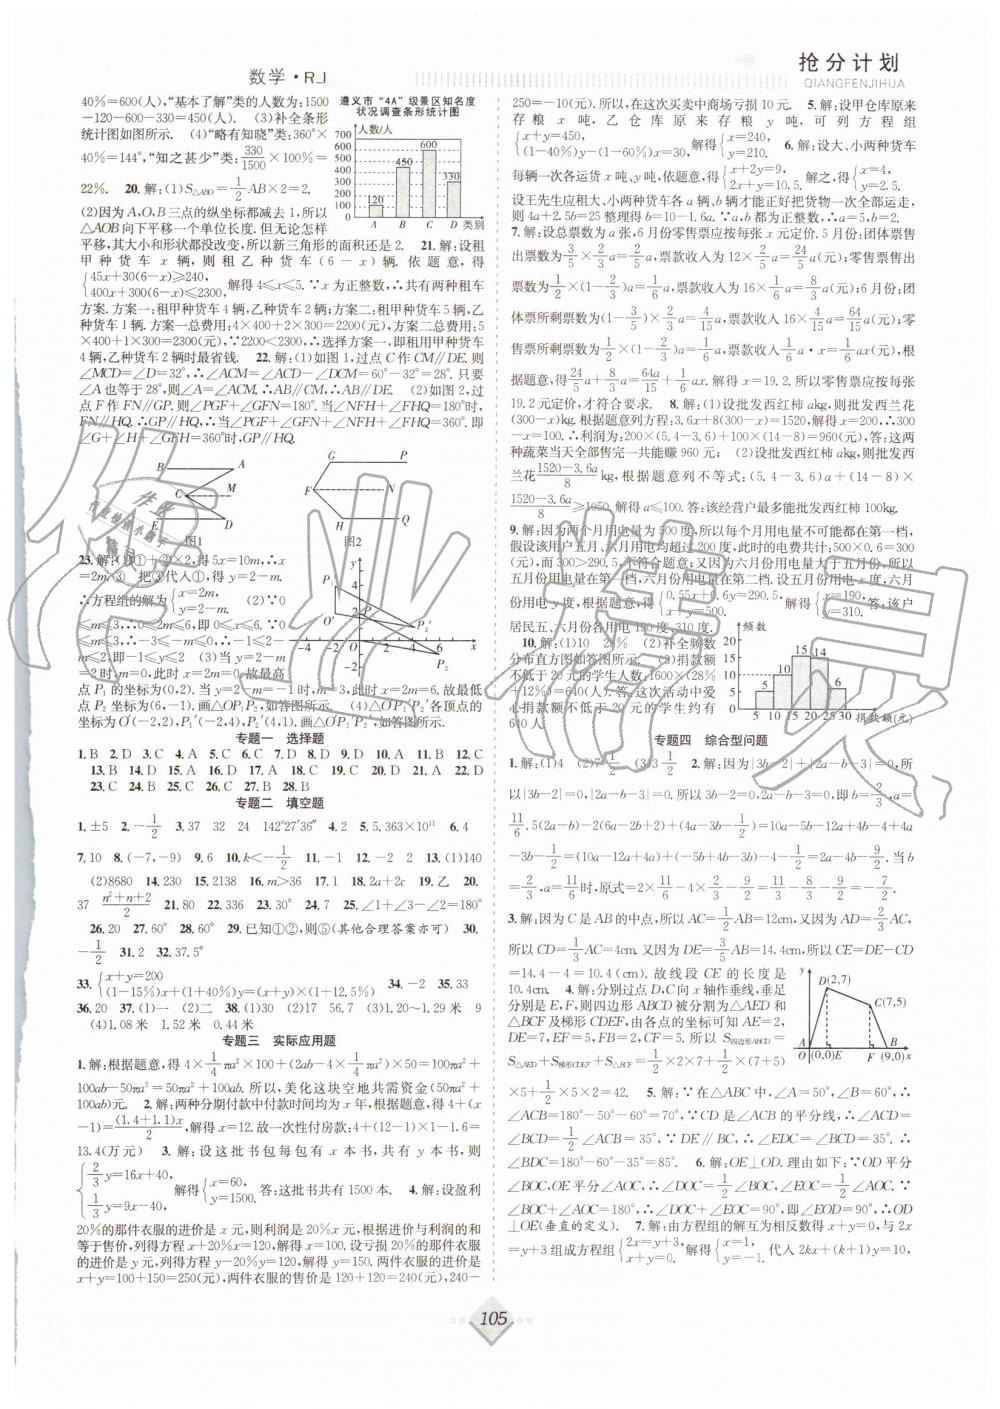 数学·RJ
抢分计划
QIANGFENJIHUA
40%=600(人),“基本了解”类的人数为:1500
-120-600-330=450(人). (3)补全条形
统计图如图所示. (4)“略有知晓”类:360°×
40%=144°,“知之甚少”类:330/1500×100%=
22%. 20.解:(1)S△ABO=1/2AB×2=2.
遵义市“4A”级景区知名度
状况调查条形统计图
人数/人
700
600
500
400
300
200
100
0
120
450
600
330
A B C D 类别
(2)因为A,O,B三点的纵坐标都减去1,所以
△AOB向下平移一个单位长度.但无论怎样
平移,其大小和形状都没改变,所以新三角形的面积还是2. 21.解:设租
甲种货车x辆,则租乙种货车(6-x)辆.依题意,得
{45x+30(6-x)≥240,
400x+300(6-x)≤2300, 解得4≤x≤5.∵x为正整数,∴共有两种租车
方案.方案一:租甲种货车4辆,乙种货车2辆;方案二:租甲种货车5辆,乙
种货车1辆.方案一总费用:4×400+2×300=2200(元),方案二总费用:5
×400+1×300=2300(元),∵2200<2300,∴选择方案一,即租用甲种货车
4辆,乙种货车2辆时最省钱. 22.解:(1)如图1,过点C作CM∥DE.则
∠MCD=∠D=32°,∴∠ACM=∠ACD-∠DCM=60°-32°=28°.只要
∠A也等于28°,则∠A=∠ACM.∴AB∥CM,∴AB∥DE. (2)如图2,过
点F作FN∥GP.则∠PGF+∠GFN=180°.当∠NFH+∠FHQ=180°时,
FN∥HQ.∴GP∥HQ,∴当∠PGF+∠GFN+∠NFH+∠FHQ=360°.即
∠G+∠H+∠GFH=360°时,GP∥HQ.
B A C M E D
图1
G P F N H Q
图2
23.解:(1)①+②×2,得5x=10m,∴x
=2m.③ 把③代入①,得y=2-m.
∴方程组的解为{x=2m,
y=2-m. (2)∵0
≤m≤3,∴0≤2m≤6,即0≤x≤6.∵0
≤m≤3,∴-3≤-m≤0,∴-1≤2-
m≤2,即-1≤y≤2 (3)当x=0
时,2m=0,此时x=2m=0.故最高
点P₁的坐标为(0,2).当y=2-m=-1时,m=3,此时x=2m=6.故最低
点P₂的坐标为(6,-1).画△OP₁P₂,如答图所示. (4)△O'P₁'P₂'各顶点的
坐标为O'(-2,2),P₁'(-2,4),P₂'(4,1).画△O'P₁'P₂',如答图所示.
专题一 选择题
1.B 2.D 3.C 4.A 5.C 6.C 7.D 8.C 9.D 10.A 11.B 12.C
13.B 14.D 15.A 16.A 17.C 18.C 19.C 20.B 21.D 22.D
23.C 24.C 25.A 26.D 27.B 28.B
专题二 填空题
1.±5 2.-1/2 3.37 32 24 142°27′36″ 4.2 5.5.363×10¹¹ 6.4
7.10 8.(-7,-9) 9.6 10.k<-1/2 11.-1 12.-2 2 13.(1)140
(2)8680 14.230 15.150 16.m>36 17.1 18.2a+2c 19.乙 20.
37 n²+n+2/2 21.80 22.336 23.30° 24.7 25.∠1+∠3-∠2=180°
26.20 27.60° 28.60° 29.已知①②,则⑤(其他合理答案亦可) 30.
-1/2 31.2 32.37.5°
33.{x+y=200
(1-15%)x+(1+40%)y=(x+y)×(1+12.5%) 34.-2 35.33
36.20 37.(1)一 (2)二 38.(1)30 (2)17 56.7 (3)1.20~1.29米 9
(4)1.08米 1.52米 0.44米
专题三 实际应用题
1.解:根据题意,得4×1/4πa²×100+(2ab-4×1/4πa²)×50=100πa²+
100ab-50πa²=50πa²+100ab.所以,美化这块空地共需资金(50πa²+
100ab)元. 2.解:两种分期付款中付款时间均为x年,根据题意,得4+(x
-1)=(1.4+1.1)x/2,解得x=12.故一次性付房款:4+(12-1)×1-1.6=
13.4(万元) 3.解:设这批书包每包有x本书,共有y本书,则
{2/3y=16x+40,
1/3y=9x-40, 解得{x=60,
y=1500. 答:这批书共有1500本. 4.解:设盈利
20%的那件衣服的进价是x元,则利润是20%x元,根据进价与利润的和
等于售价,列得方程x+20%x=120,解得x=100.设亏损20%的那件衣服
的进价是y元,列得方程y-20%y=120,解得y=150.两件衣服的进价是
x+y=100+150=250(元),两件衣服的售价是120+120=240(元),240-
250=-10(元).所以,在这次买卖中商场亏损10元. 5.解:设甲仓库原来
存粮x吨,乙仓库原来存粮y吨,可列方程组
{x+y=450,
(1-40%)y-(1-60%)x=30, 解得{x=240,
y=210. 6.解:设大、小两种货车
每辆一次各运货x吨、y吨,依题意,得{x+2y=9,
2x+y=10.5. 解之,得{x=4,
y=2.5.
设王先生应租大、小两种货车各a辆、b辆才能正好把货物一次全部运走,
则4a+2.5b=25整理得b=10-1.6a.∵a,b都为正整数,∴a=5,b=2.
7.解:设总票数为a张,6月份零售票应按每张x元定价.5月份:团体票售
出票数为3/5×2/3a=2/5a(张),票款收入为12×2/5a=24/5a(元);零售票售出
票数为1/2×(1-2/3)a=1/6a(张),票款收入为16×1/6a=8/3a(元);6月份:团
体票所剩票数为(1-3/5)×2/3a=4/15a(张),票款收入16×4/15a=64/15a(元);零
售票所剩票数为1/2×(1-2/3)a=1/6a(张),票款收入为1/6a·x=1/6ax(元),根
据题意,得24/5a+8/3a=64a/15+1/6ax. 解得x=19.2.所以零售票应按每张
19.2元定价,才符合要求. 8.解:(1)设批发西红柿akg,则批发西兰花
(300-x)kg.根据题意列方程:3.6x+8(300-x)=1520,解得x=200,∴300
-x=100.∴利润为:200×(5.4-3.6)+100×(14-8)=960(元),答:这两
种蔬菜当天全部售完一共能赚960元; (2)设批发西红柿akg,则批发西
兰花(1520-3.6a)/8kg,根据题意列不等式:(5.4-3.6)a+(14-8)×
(1520-3.6a)/8≥1050.解得a≤100.答:该经营户最多能批发西红柿100kg.
9.解:因为两个月用电量为500度,所以每个月用电量不可能都在第一档,
假设该用户五月、六月每月用电均超过200度,此时的电费共计:500×0.6=300
(元),而300>290.5,不符合题意;又因为六月份用电量大于五月份,所以
五月份用电量在第一档,六月份用电量在第二档.设五月份用电x度,六月
份用电y度,根据题意,得{0.55x+0.6y=290.5,
x+y=500. 解得{x=190,
y=310. 答:该户
居民五、六月份各用电190度,310度.
10.解:(1)10 28% (2)补全频数
分布直方图如答图所示; (3)捐款额
不低于20元的学生人数:1600×(28%
+12%)=640(人).答:这次活动中爱
心捐款额不低于20元的学生约有
640人.
频数
20
15
10
5
5 10 15 14 6
5 10 15 20 25 30 捐款额(元)
专题四 综合型问题
1.解:(1)4 (2)7 1/2 (3)3 1/2 2.解:因为|3b-2|+|2a-b-3|=0,所
以|3b-2|=0,|2a-b-3|=0.所以3b-2=0,2a-b-3=0,即b=2/3,a=
11/6.5(2a-b)-2(6a-2b+2)+(4a-3b-1/2)=10a-5b-12a+4b-4+4a
-3b-1/2=(10a-12a+4a)+(-5b+4b-3b)-4-1/2=2a-4b-9/2.当b
=2/3,a=11/6时,原式=2×11/6-4×2/3-9/2=11/3-8/3-9/2=-7/2.
3.解:因为C是AB的中点,所以AC=1/2AB=12cm,又因为AD=2/3AC,
所以CD=1/3AC=4cm.又因为DE=3/5AB=14.4cm,所以CE=DE-CD
=14.4-4=10.4(cm).故线段CE的长度是
10.4cm. 4.解:分别过点D,C向x轴作垂线,垂足
分别是E,F,则四边形ABCD被分割为△AED和
△BCF及梯形CDEF,由各点的坐标可知AE=2,
DE=7,EF=5,FB=2,CF=5.所以S四边形ABCD=
S△AED+S梯形CDEF+S△BCF=1/2×2×7+1/2×(7+5)
×5+1/2×5×2=42. 5.解:∵在△ABC中,∠A=50°,∠B=60°,∴
y
D(2,7)
C(7,5)
A B
O (0,0)E F (9,0)x
∠ACB=180°-50°-60°=70°,∵CD是∠ACB的平分线,∴∠ACD=
∠BCD=1/2∠ACB=35°,∵DE∥BC,∴∠EDC=∠BCD=35°.∴
∠BDC=180°-60°-35°=85°. 6.解:OE⊥OD.理由如下:∵OD平分
∠BOC,OE平分∠AOC,∴∠DOC=1/2∠BOC,∠EOC=1/2∠AOC.∵
∠BOC+∠AOC=180°,∴∠DOC+∠EOC=90°,即∠EOD=90°,∴OD
⊥OE(垂直的定义). 7.解:由方程组的解互为相反数得x+y=0,与2x
=y+3组成方程组{2x=y+3,
x+y=0, 解得{x=1,
y=-1. 代入2kx+(k+1)y=10,
105